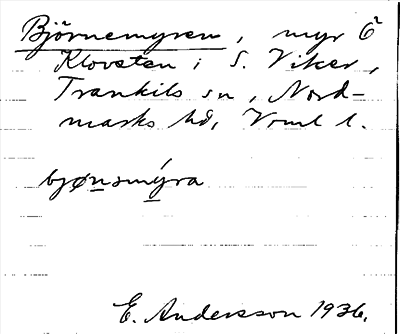 Björnemyren, myr Ö
Klovsten i S. Viker,
Trankils sn, Nord-
marks hd, Vrml l.
bjønsmýra
E. Andersson 1936.